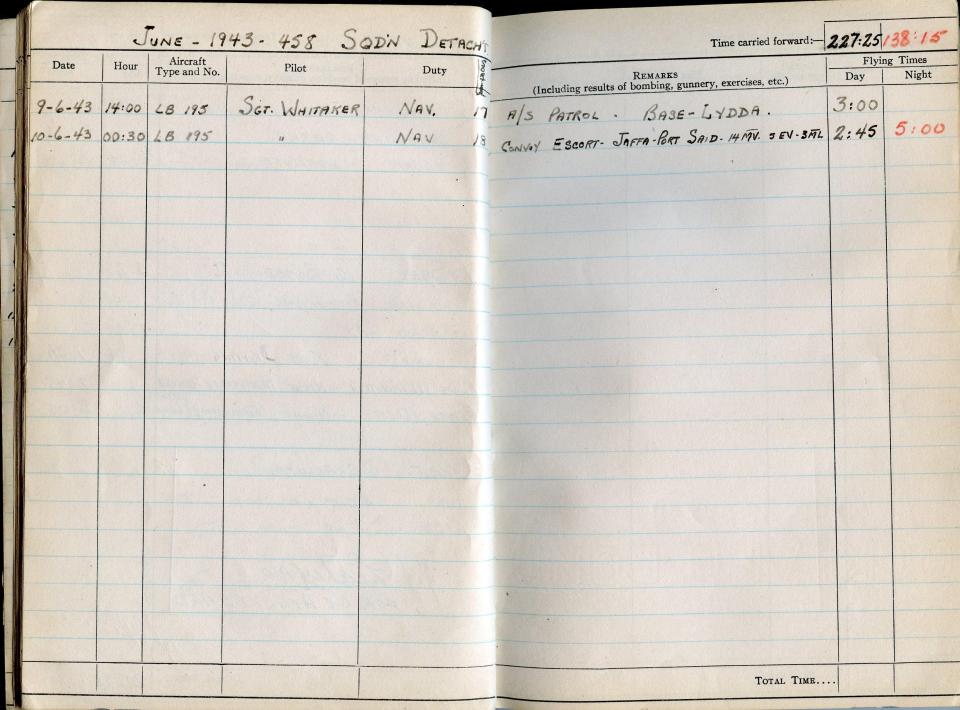 JUNE - 1943 - 458 SQD'N DETACH'T
Time carried forward:— 227:25 138:15
Date Hour Aircraft Type and No. Pilot Duty REMARKS (Including results of bombing, gunnery, exercises, etc.) Flying Times Day Night
9-6-43 14:00 LB 195 SGT. WHITAKER NAV. 17 A/S PATROL . BASE-LYDDA . 3:00
10-6-43 00:30 LB 195 " NAV 18 CONVOY ESCORT- JAFFA-PORT SAID- 14 MV. 5 EV-3ML 2:45 5:00
TOTAL TIME....